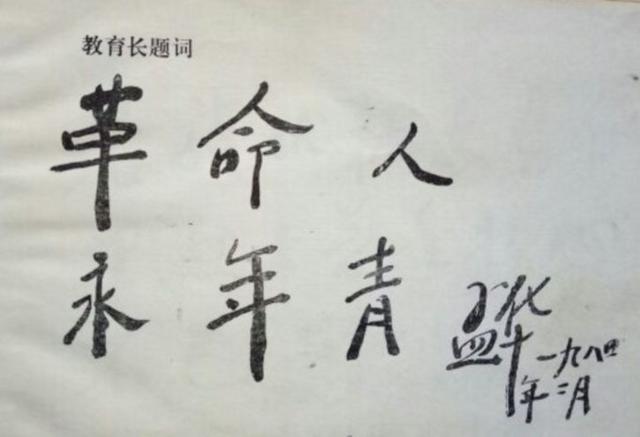 教育长题词
革命人
永年青
孟华
一九八四
年二月